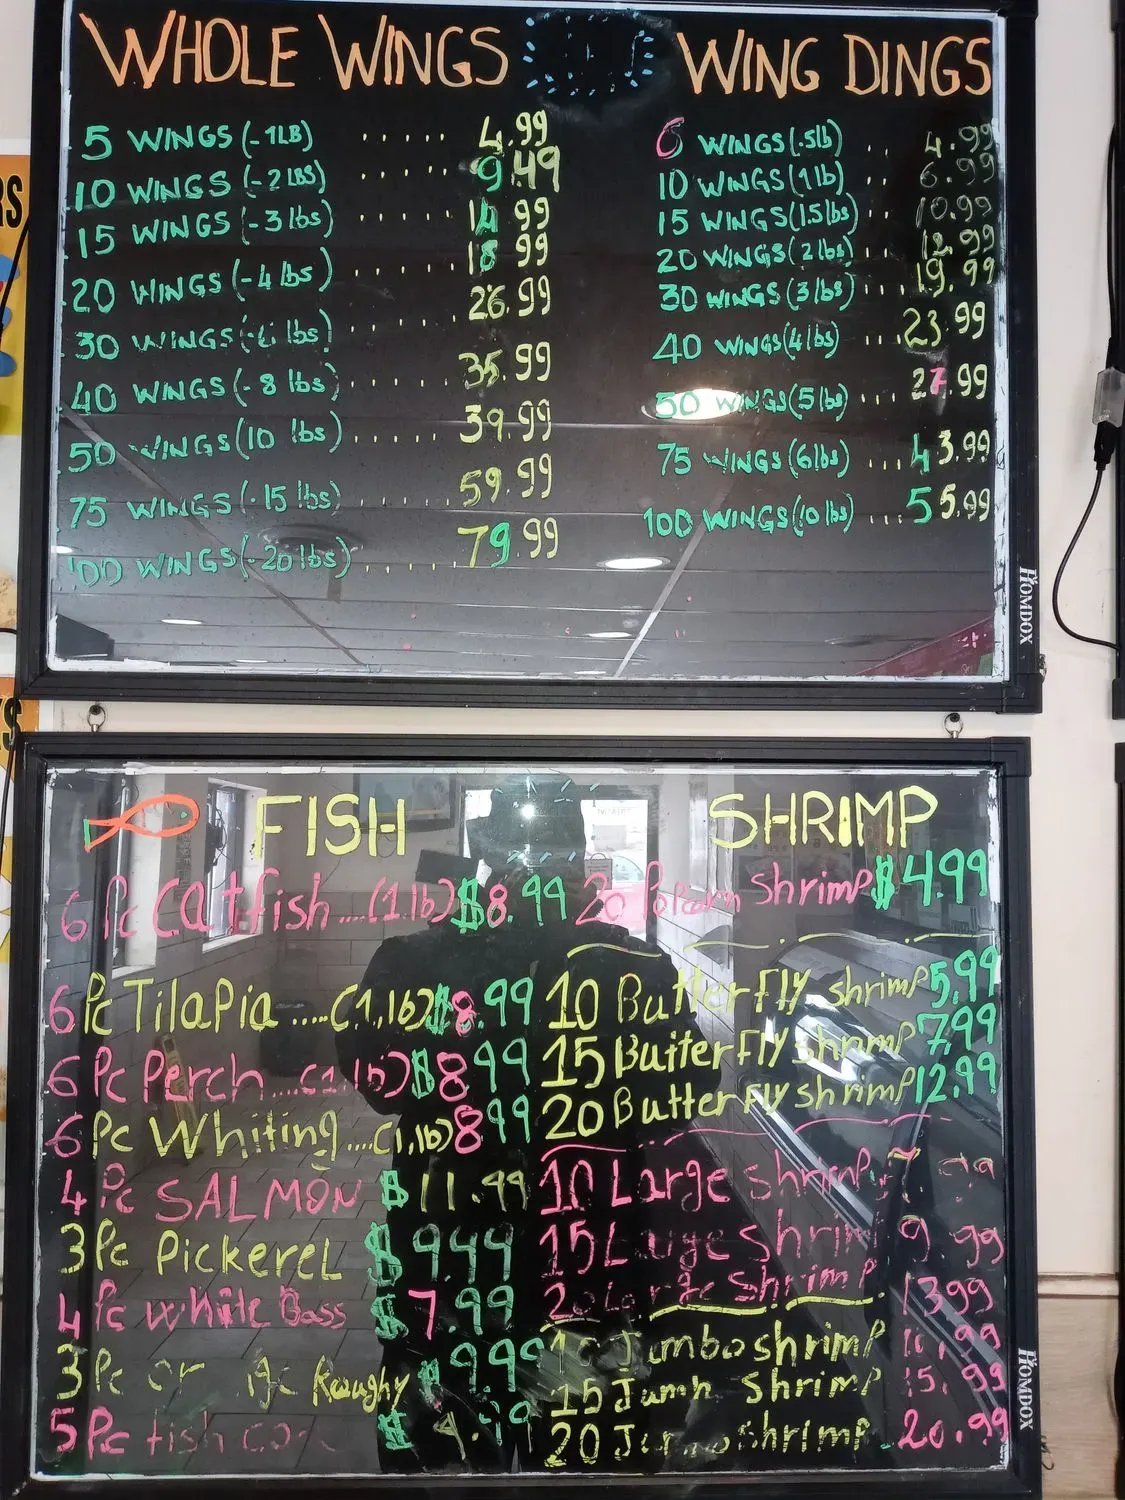 WHOLE WINGS
5 WINGS (-1LB) ...... 4.99
10 WINGS (-2 LBS) ...... 9.49
15 WINGS (-3 lbs) ...... 14.99
20 WINGS (-4 lbs) ...... 18.99
30 WINGS ( lbs) ...... 26.99
40 WINGS (- 8 lbs) ...... 35.99
50 WINGS (10 lbs) ...... 39.99
75 WINGS (-15 lbs) ...... 59.99
100 WINGS (-20 lbs) ...... 79.99
WING DINGS
6 WINGS (.5lb) .. 4.99
10 WINGS (1 lb) .. 6.99
15 WINGS (1.5 lbs) .. 10.99
20 WINGS (2 lbs) .. 12.99
30 WINGS (3 lbs) ... 19.99
40 WINGS (4 lbs) ... 23.99
50 WINGS (5 lbs) ... 27.99
75 WINGS (6 lbs) ... 43.99
100 WINGS (10 lbs) ... 55.99
HOMDOX
FISH
6 Pc Catfish ... (1.lb) $8.99
6 Pc TilaPia ..... (1,lb) $8.99
6 Pc Perch ... (1,lb) $8.99
6 Pc Whiting .... (1,lb) 8.99
4 Pc SALMON $11.99
3 Pc PickereL $9.99
4 Pc White Bass $7.99
3 Pc Roughy 9.99
5 Pc fish $4.99
SHRIMP
20 Popcorn shrimp $4.99
10 ButterFly shrimp 5.99
15 ButterFly shrimp 7.99
20 ButterFly shrimp 12.99
10 Large shrimp
15 Large shrimp 9.99
20 Large shrimp 13.99
10 Jumbo shrimp 10.99
15 Jumbo shrimp 15.99
20 Jumbo shrimp 20.99
HOMDOX